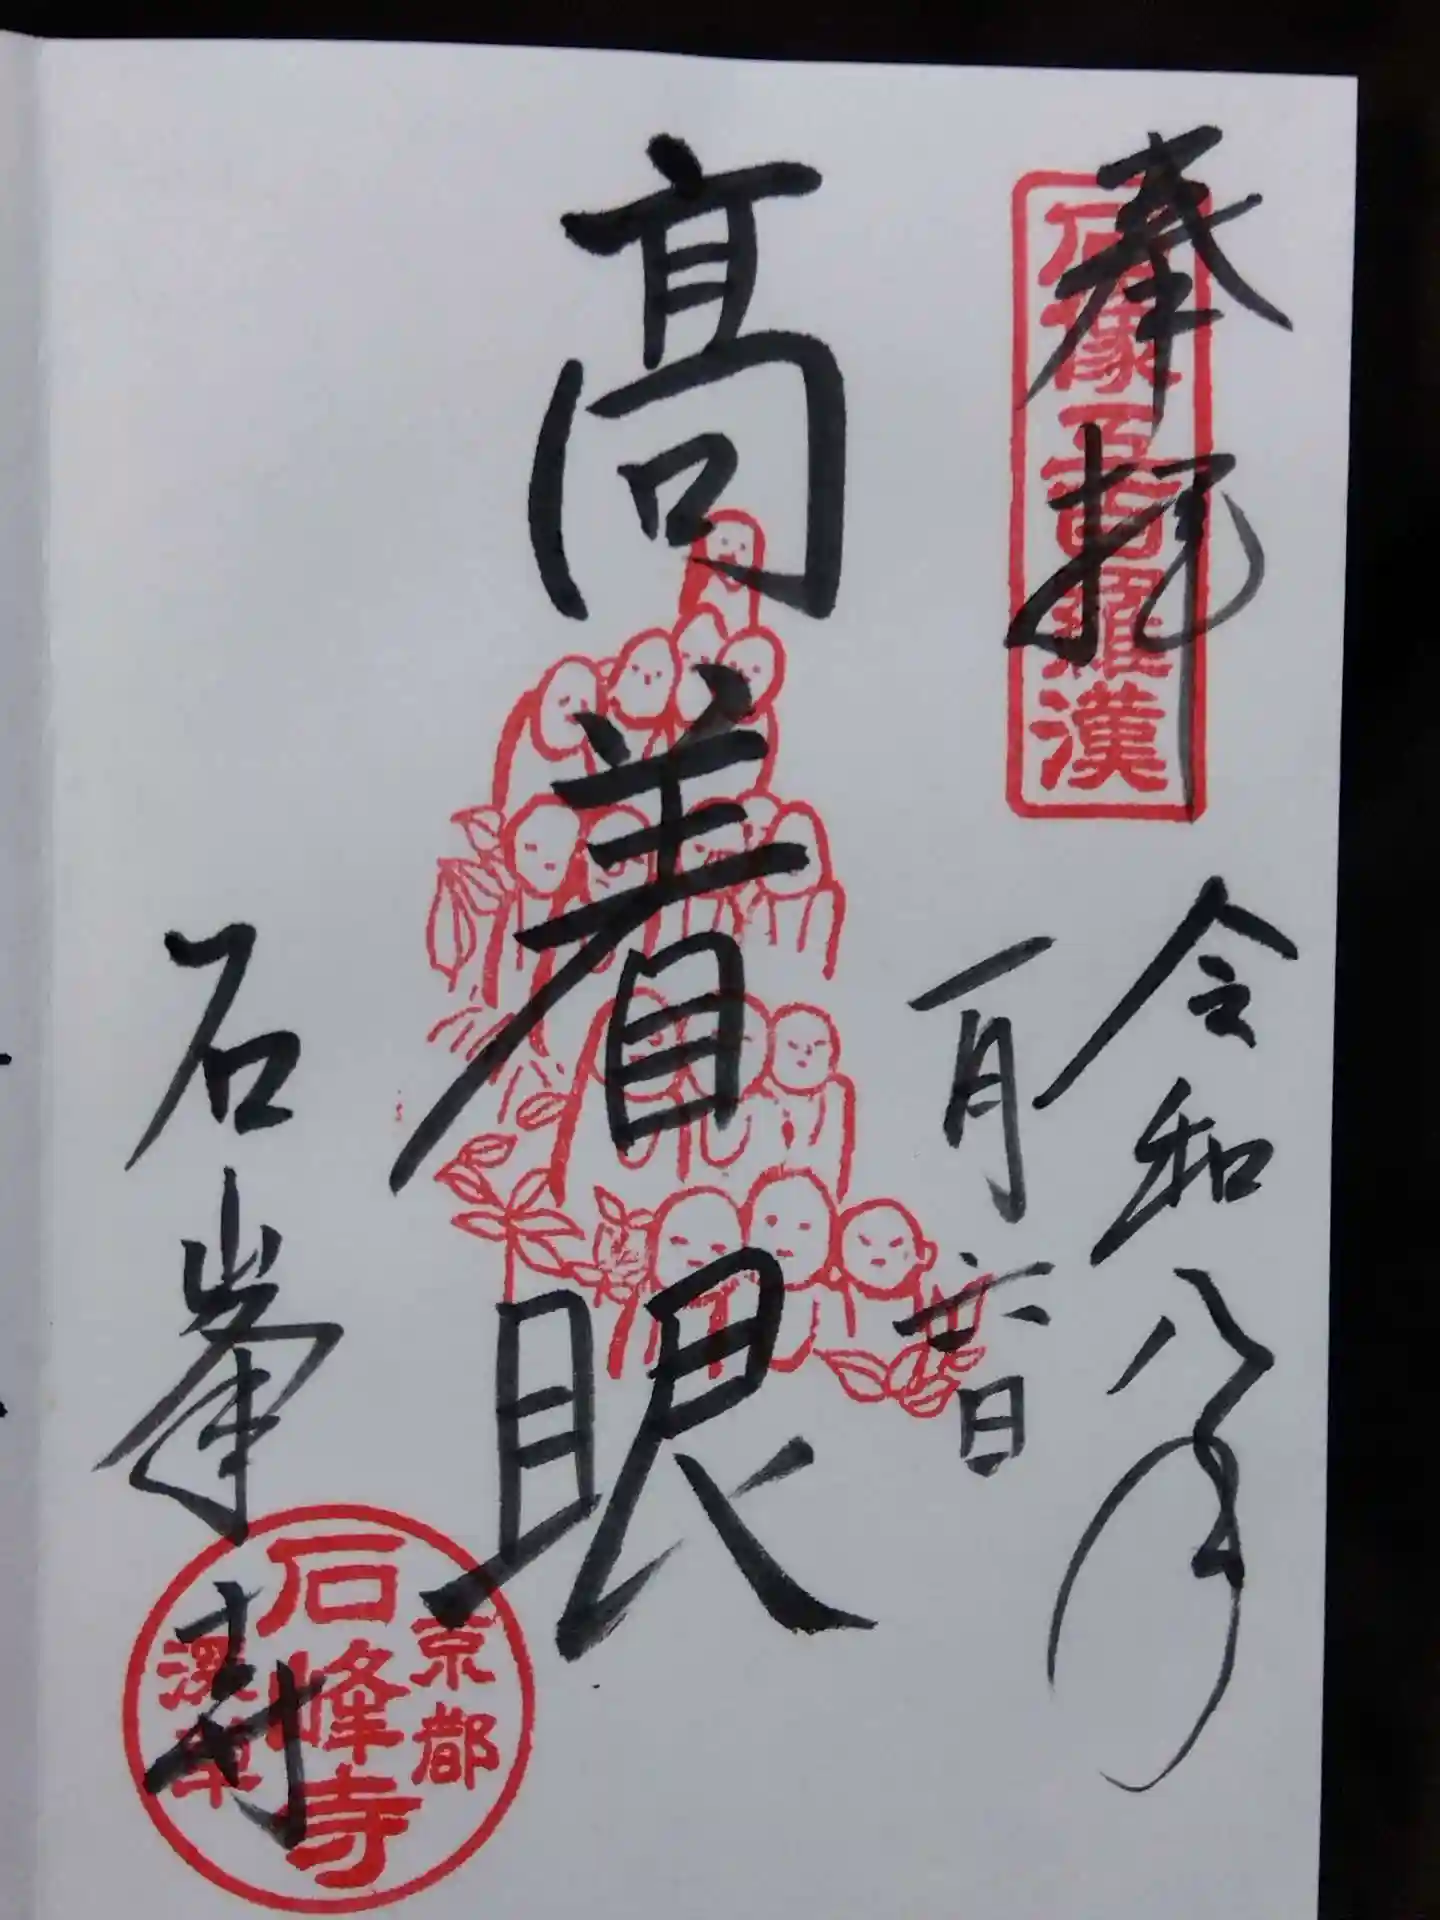 奉拝
石像五百羅漢
令和八年
一月六日
高着眼
石峯寺
京都
石峰寺
深草